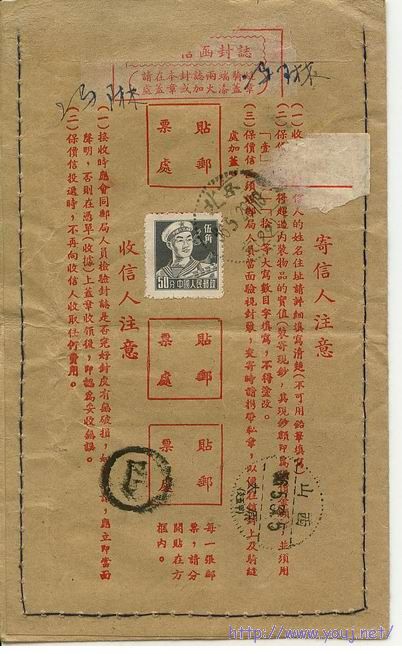 函封誌
請在本封誌兩端騎縫
處蓋章或加火漆
寄信人注意
(一)收 信人的姓名住址請詳細填寫清楚(不可用鉛筆填寫
(二)保價 內裝物品的實值(如寄現鈔，其現鈔額即為 並須用
「壹」 「拾」等大寫數目字填寫，不得塗改。
(三)保價信 郵局人員當面驗視封裝，交寄時請携帶私章，以便在信封上及騎縫
處加蓋
貼郵
票處
伍角
50分 中國人民郵政
貼郵
票處
貼郵
票處
每一張郵
票，請分
開貼在方
框內。
收信人注意
(一)接收時應會同郵局人員檢驗封誌是否完好封皮有無破損，如 應立即當面
聲明，否則在憑單(收據)上蓋章收領後，即認為妥收無誤。
(二)保價信投遞時，不再向收信人收取任何費用。
山西
http://www.youj.net/